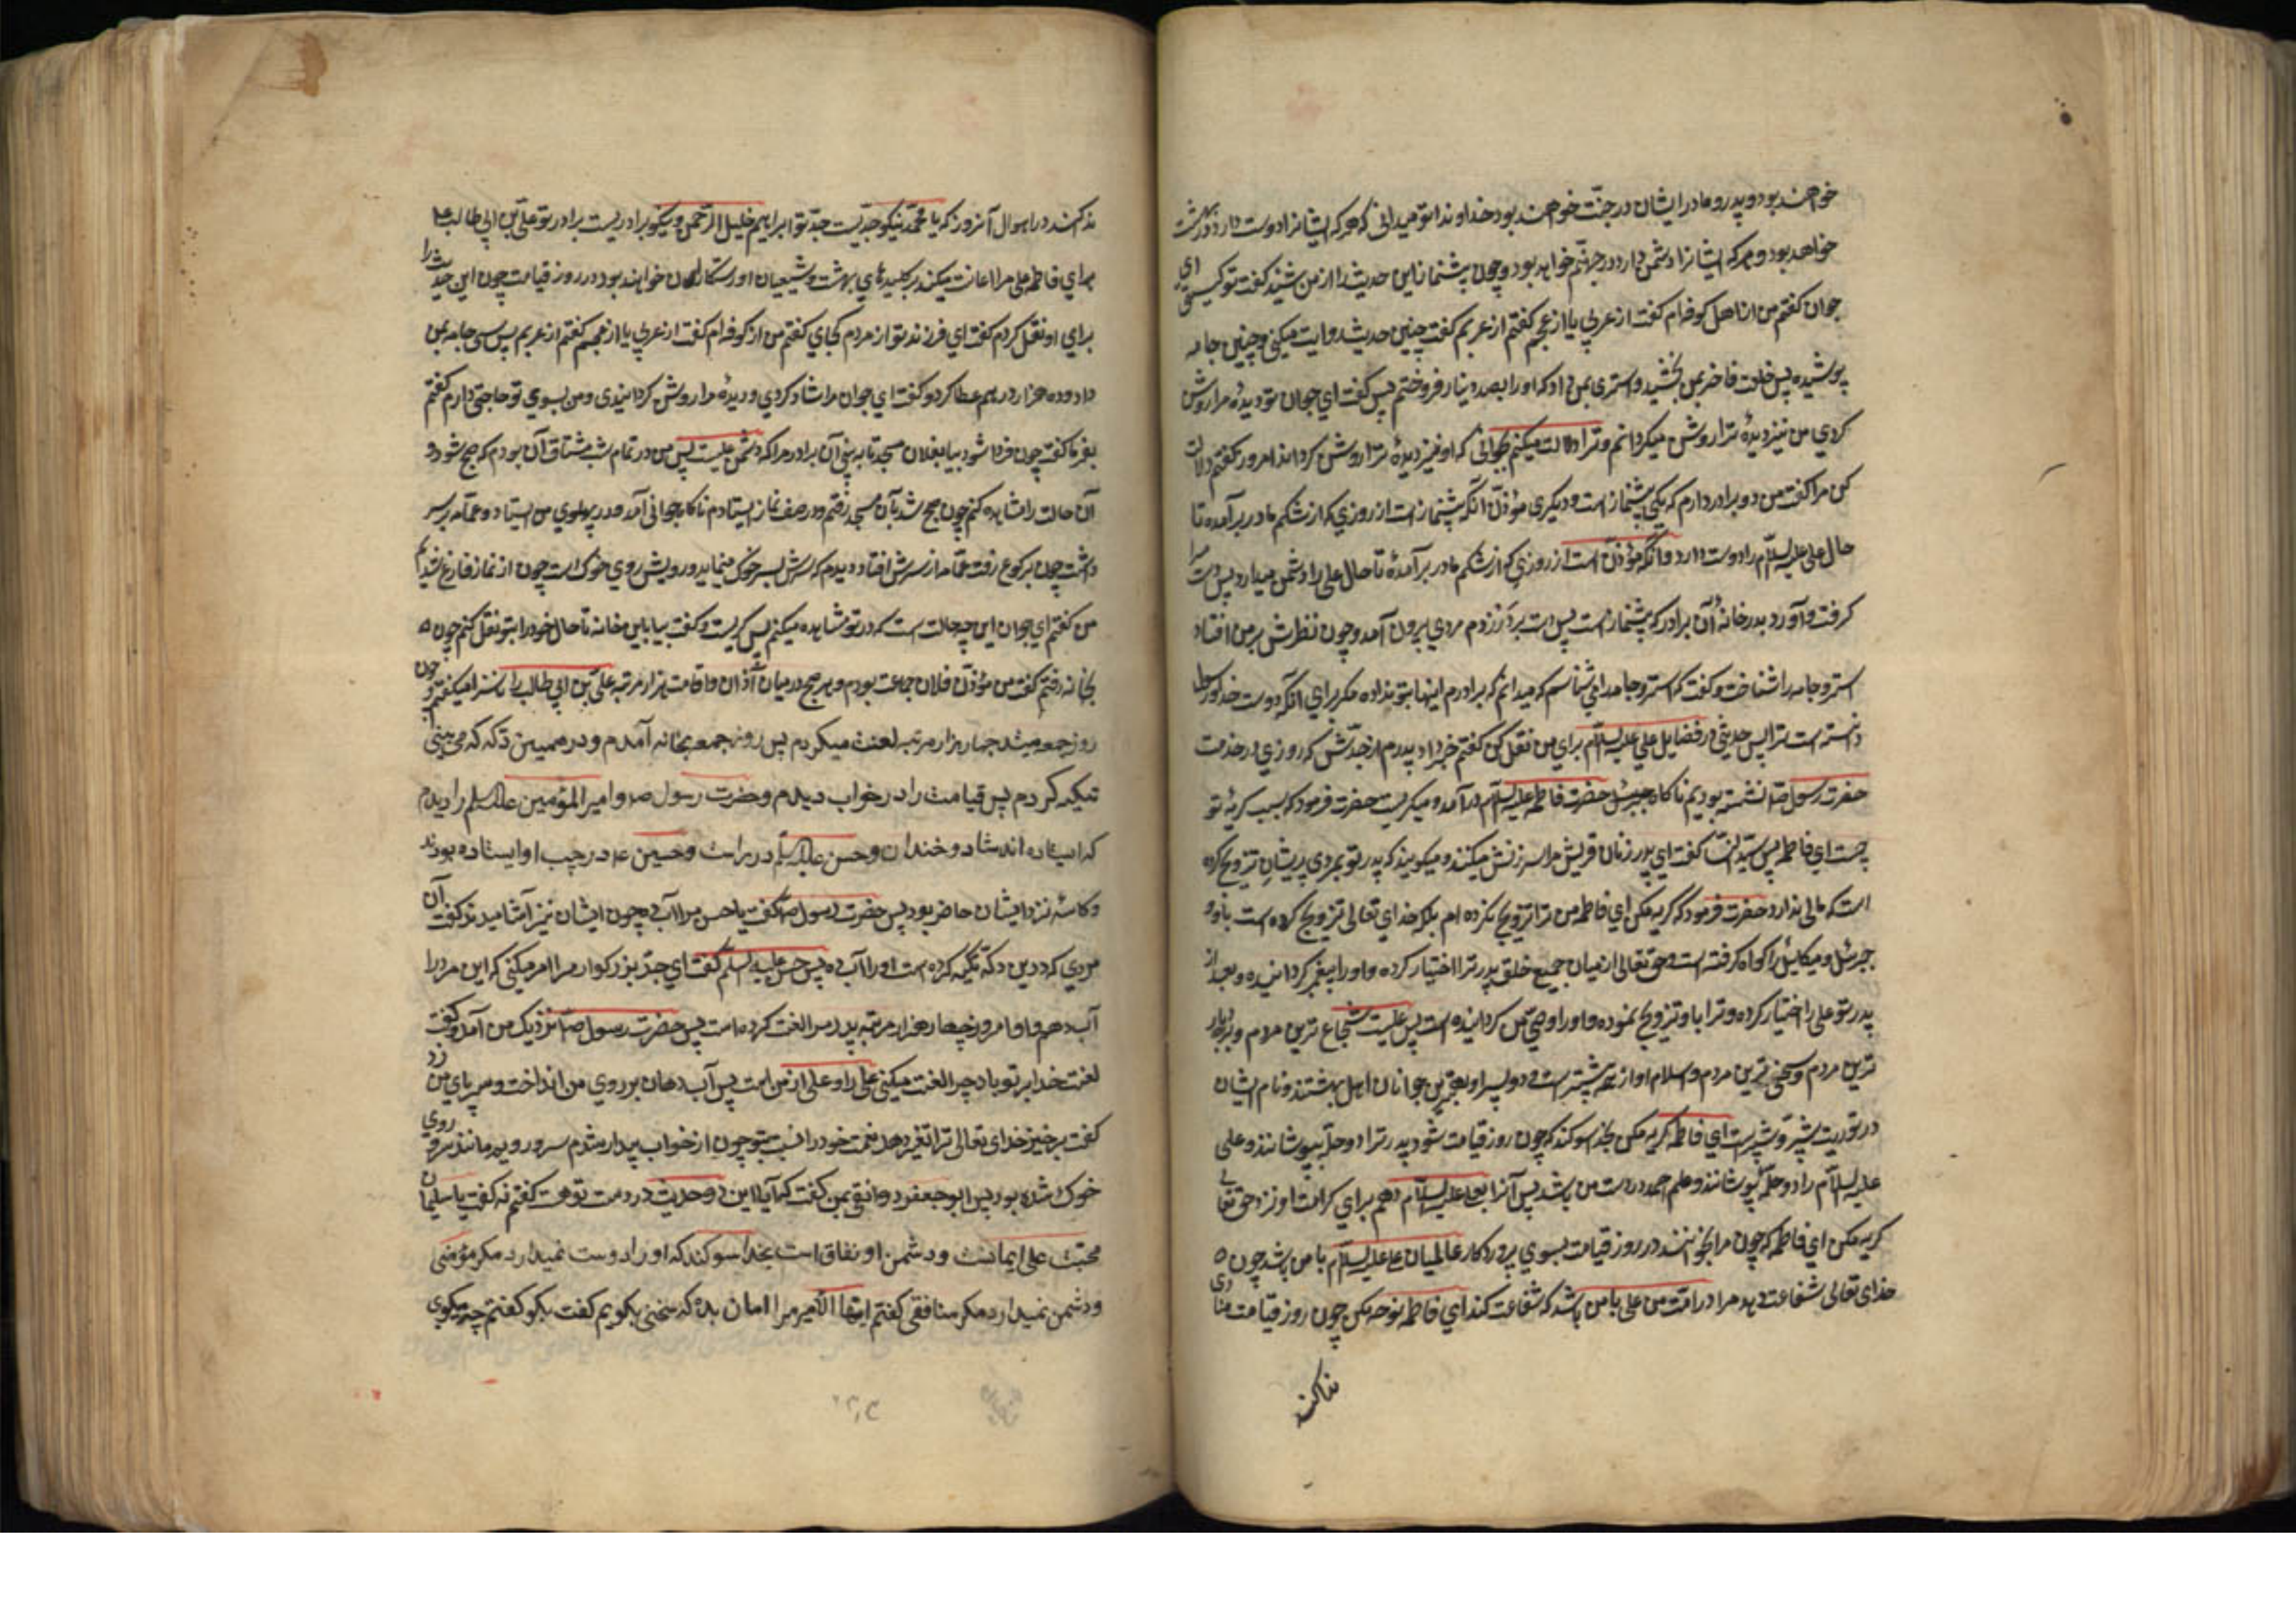 خواهند بود و پدر و مادر ایشان در جنت خواهند بود خداوندا تو میدانی که هر که ایشانرا دوست دارد در بهشت
خواهد بود و هر که ایشانرا دشمن دارد در جهنم خواهد بود و چون پیشنماز این حدیث را از من شنید گفت تو کیستی ای
جوان گفتم من از اهل کوفه ام گفت از عربی یا از عجم گفتم از عربم گفت چنین حدیث روایت میکنی و چنین جامه
پوشیده پس خلعت فاخر بمن بخشید و استری بمن داد که او را بصد دینار فروختم پس گفت ای جوان تو دیدهٔ مرا روشن
کردی من نیز دیدهٔ ترا روشن میکردانم و ترا دلالت میکنم بجوانی که او نیز دیدهٔ ترا روشن کرداند امروز گفتم دلالت
کن مرا گفت من دو برادر دارم که یکی پیشنماز است و دیکری مؤذن آنکه پیشنماز است از روزی که از شکم مادر برآمده تا
حال علی علیه السلام را دوست دارد و آنکه مؤذن است از روزی که از شکم مادر برآمدهٔ تا حال علی را دشمن میدارد پس دست مرا
گرفت و آورد بدر خانهٔ آن برادر که پیشنماز است پس دست بر در زدم مردی بیرون آمد و چون نظرش بر من افتاد
استر و جامه را شناخت و گفت که استر و جامه را می شناسم که میدانم که برادرم اینها بتو نداده مکر برای آنکه دوست خدا و رسول
دانسته است ترا پس حدیثی در فضایل علی علیه السلام برای من نقل کن گفتم خبر داد پدرم از جدش که روزی در خدمت
حضرت رسول ص نشسته بودیم ناکاه حضرت فاطمه علیه السلام درآمد و میکریست حضرت فرمود که سبب کریهٔ تو
چیست ای فاطمه پس سیدة النسا گفت ای پدر زنان قریش مرا سرزنش میکنند و میکویند که پدر تو بمردی پریشان تزویج کرده
است که مالی ندارد حضرت فرمود که گریه مکن ای فاطمه من ترا تزویج نکرده ام بلکه خدای تعالی تزویج کرده است باو و
جبرئیل و میکائیل را کواه کرفته است و حق تعالی از میان جمیع خلق پدر ترا اختیار کرده و او را پیغمبر کردانیده و بعد از
پدر تو علی را اختیار کرده و ترا باو تزویج نموده و او را وصی من کردانیده است پس علیست شجاع ترین مردم و بردبار
ترین مردم و سخی ترین مردم و اسلام او از همه پیشتر است و دو پسر او بهترین جوانان اهل بهشتند و نام ایشان
در توریت شبر و شبیر است ای فاطمه گریه مکن بخدا سوکند که چون روز قیامت شود پدر ترا دو حله بپوشانند و علی
علیه السلام را دو حله بپوشانند و علم حمد در دست من باشد پس آنرا بعلی علیه السلام دهم برای کرامت او نزد حق تعالی
کریه مکن ای فاطمه که چون مرا بخوانند در روز قیامت بسوی پروردکار عالمیان علی علیه السلام با من باشد چون
خدای تعالی شفاعت دهد مرا در امت من علی با من باشد که شفاعت کند ای فاطمه نوحه مکن چون روز قیامت منادی
نداکند
نداکند در اهوال آنروز که یا محمد نیکو جدیست جد تو ابراهیم خلیل الرحمن و نیکو برادریست برادر تو علی بن ابی طالب
برای فاطمه علی مرا اعانت میکند بر کلیدهای بهشت و شیعیان او رستکاران خواهند بود در روز قیامت چون این حدیث را
برای او نقل کردم گفت ای فرزند تو از مردم کجای گفتم من از کوفه ام گفت از عربی یا از عجم گفتم از عربم پس سی جامه بمن
داد و ده هزار درهم عطا کرد و گفت ای جوان مرا شاد کردی و دیدهٔ مرا روشن کردانیدی و من بسوی تو حاجتی دارم گفتم
بفرما گفت چون فردا شود بیا بفلان مسجد تا به بینی آن برادر مرا که دشمن علیست پس من در تمام شب مشتاق آن بودم که صبح شود و
آن حالت را مشاهده کنم چون صبح شد بآن مسجد رفتم و در صف نماز ایستادم ناکاه جوانی آمد و در پهلوی من ایستاد و عمامه بر سر
داشت چون برکوع رفت عمامه از سرش افتاد دیدم که سرش بسر خوک مینماید و رویش روی خوک است چون از نماز فارغ شدیم
من گفتم ای جوان این چه حالت است که در تو مشاهده میکنم پس گریست و گفت بیا باین خانه تا حال خود را بتو نقل کنم چون
بخانه رفتم گفت من مؤذن فلان جماعت بودم و هر صبح در میان اذان و اقامت هزار مرتبه علی بن ابی طالب را ناسزا میگفتم و چون
روز جمعه میشد چهار هزار مرتبه لعنت میکردم پس روز جمعه بخانه آمدم و در همین دکه که می بینی
تکیه کردم پس قیامت را در خواب دیدم و حضرت رسول ص و امیر المؤمنین علیه السلم را دیدم
که ایستاده اند شاد و خندان و حسن علیه السلم در راست و حسین ع در چپ او ایستاده بودند
و کاسه نزد ایشان حاضر بود پس حضرت رسول ص گفت یا حسن مرا آب ده چون ایشان نیز آشامیدند گفت آن
مردی که در این دکه تکیه کرده است او را آب ده پس حسن علیه السلم گفت ای جد بزرکوار مرا امر میکنی که این مرد را
آب دهم و او امروز چهار هزار مرتبه پدر مرا لعنت کرده است پس حضرت رسول ص نزدیک من آمد و گفت
لعنت خدا بر تو باد چرا لعنت میکنی علی را و علی از من است پس آب دهان بر روی من انداخت و سر پای من زد
گفت برخیز خدای تعالی ترا تغیر دهد نعمت خود را نسبت بتو چون از خواب بیدار شدم سر و رویم مانند سر و روی
خوک شده بود پس ابو جعفر دوانقی بمن گفت که آیا این دو حدیث در دست تو هست گفتم نه گفت یا سلیمان
محبت علی ایمانست و دشمن او نفاق است بخدا سوکند که او را دوست نمیدارد مکر مؤمنی
و دشمن نمیدارد مکر منافقی گفتم ایها الامیر مرا امان بده که سخنی بکویم گفت بکو گفتم چه میکوی